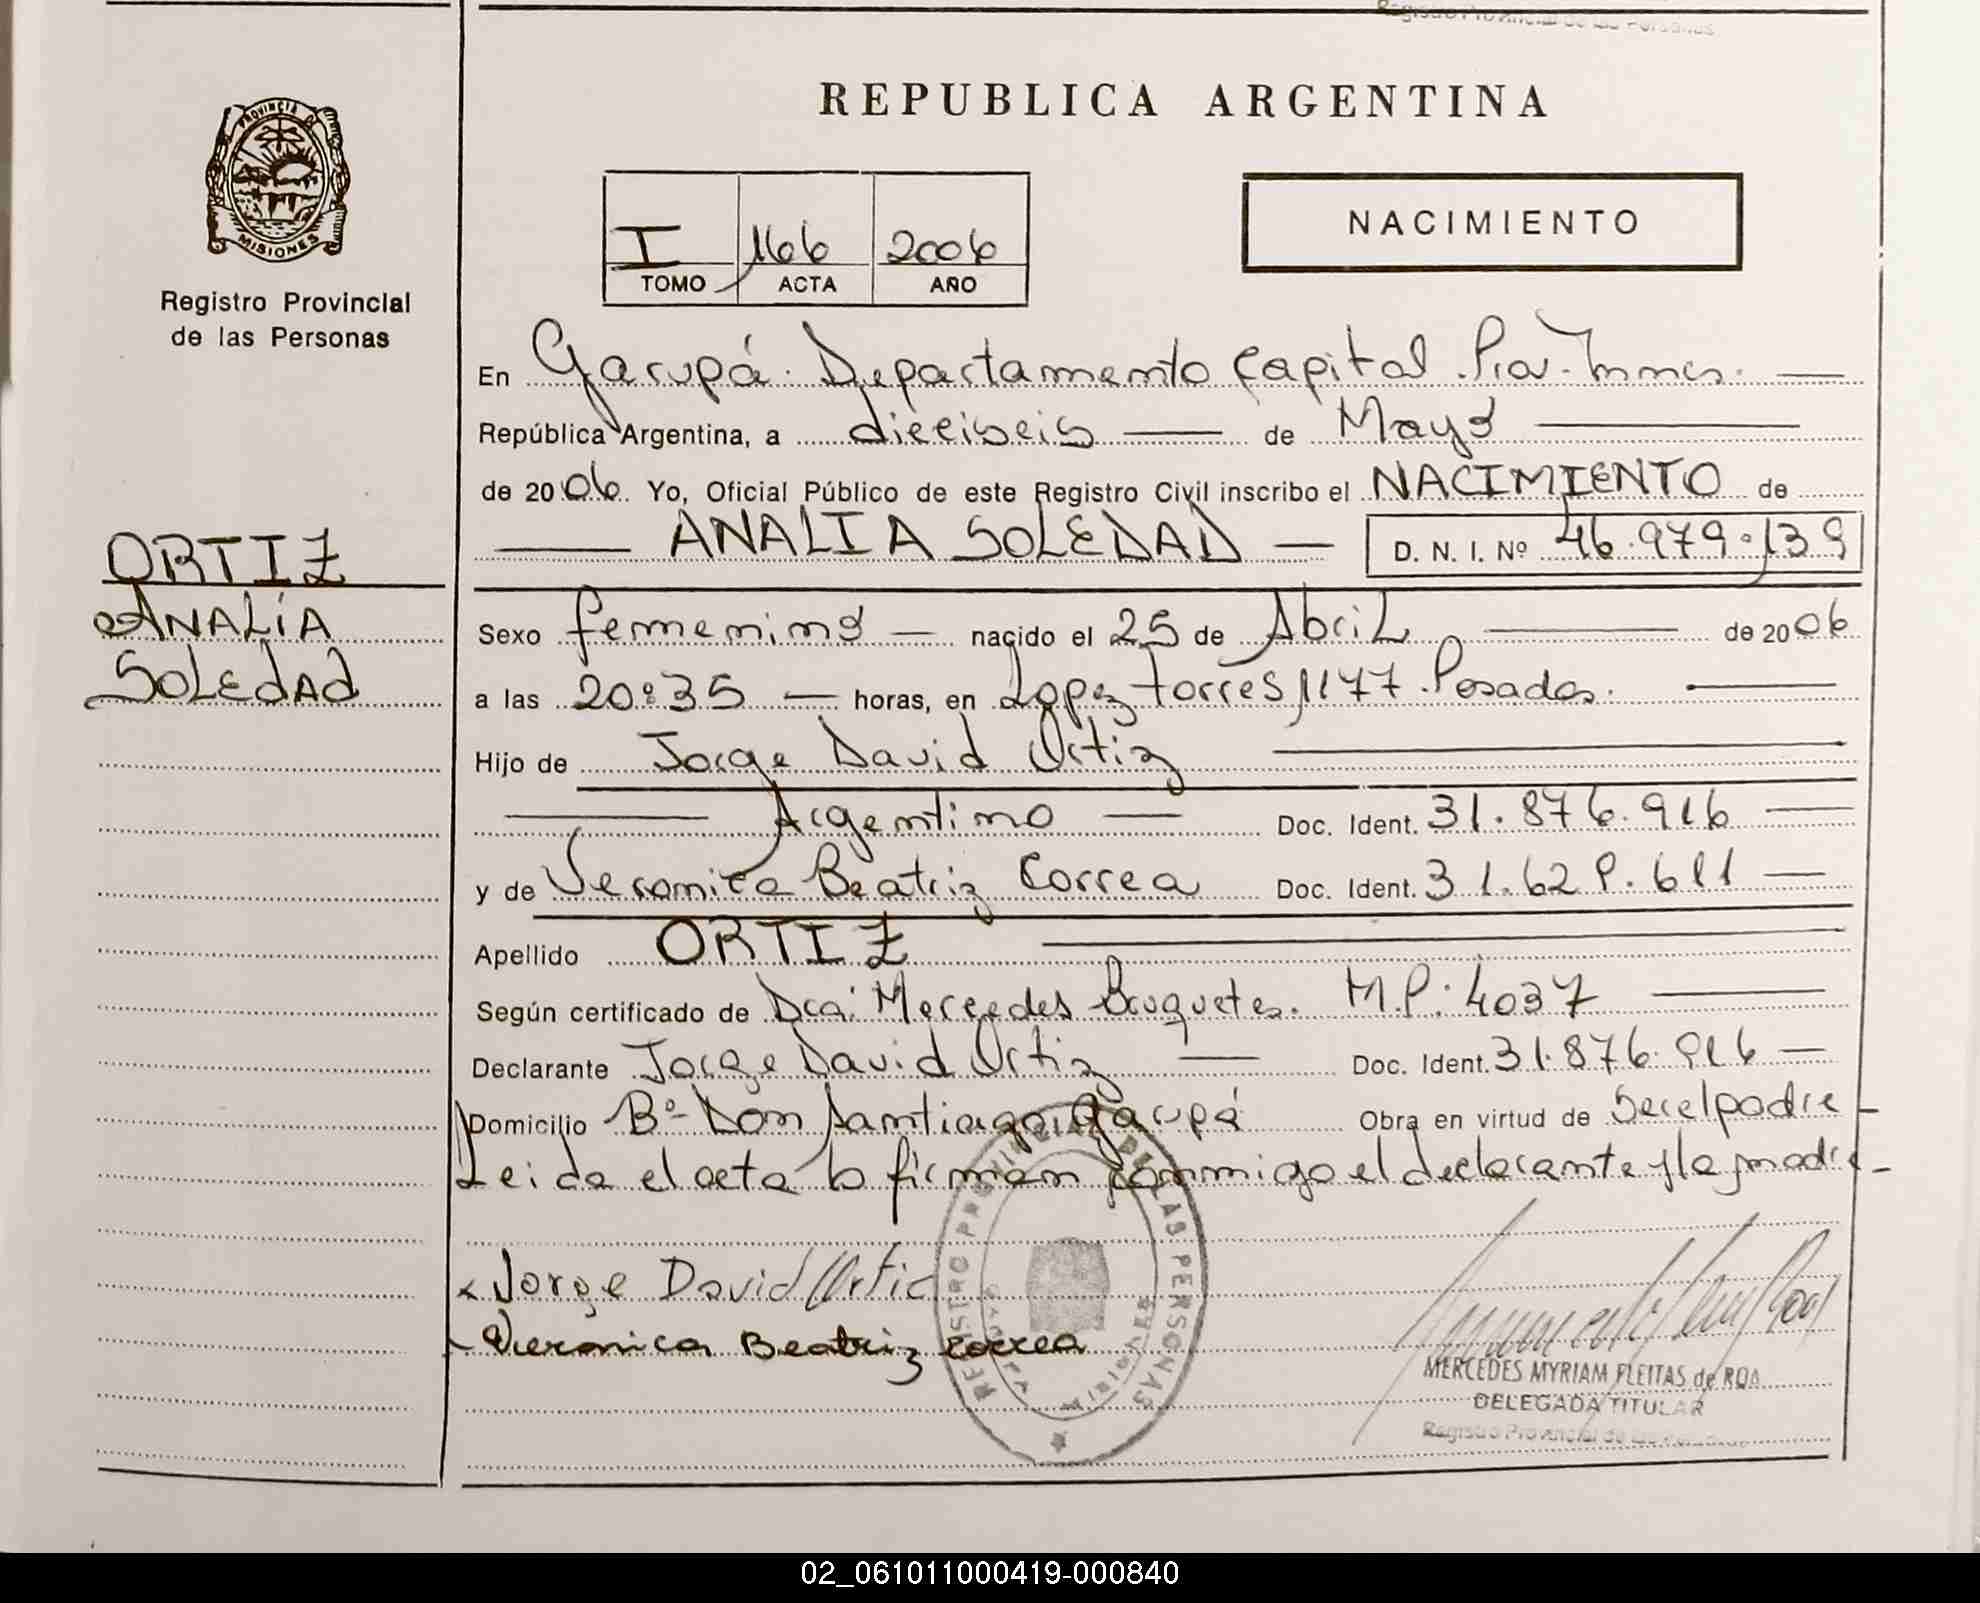 Registro Provincial de las Personas
REPUBLICA ARGENTINA
PROVINCIA DE
MISIONES
Registro Provincial
de las Personas
I 166 2006
TOMO ACTA AÑO
NACIMIENTO
En Garupá. Departamento Capital Prov. Mnes.
República Argentina, a dieciseis de Mayo
de 2006. Yo, Oficial Público de este Registro Civil inscribo el NACIMIENTO de
ANALIA SOLEDAD D. N. I. Nº 46.979.139
ORTIZ
ANALÍA
SOLEDAD
Sexo femenino nacido el 25 de Abril de 2006
a las 20:35 horas, en Lopez Torres 1177. Posadas.
Hijo de Jorge David Ortiz
Argentino Doc. Ident. 31.876.916
y de Veronica Beatriz Correa Doc. Ident. 31.629.611
Apellido ORTIZ
Según certificado de Dra. Mercedes M.P: 4037
Declarante Jorge David Ortiz Doc. Ident. 31.876.916
Domicilio Bº Don Santiago, Garupá Obra en virtud de Ser el padre
Leida el acta la firman conmigo el declarante y la madre
Jorge David Ortiz
Veronica Beatriz Correa
REGISTRO PROVINCIAL DE LAS PERSONAS
MERCEDES MYRIAM FLEITAS de ROA
DELEGADA TITULAR
Registro Provincial de las Personas
02_061011000419-000840